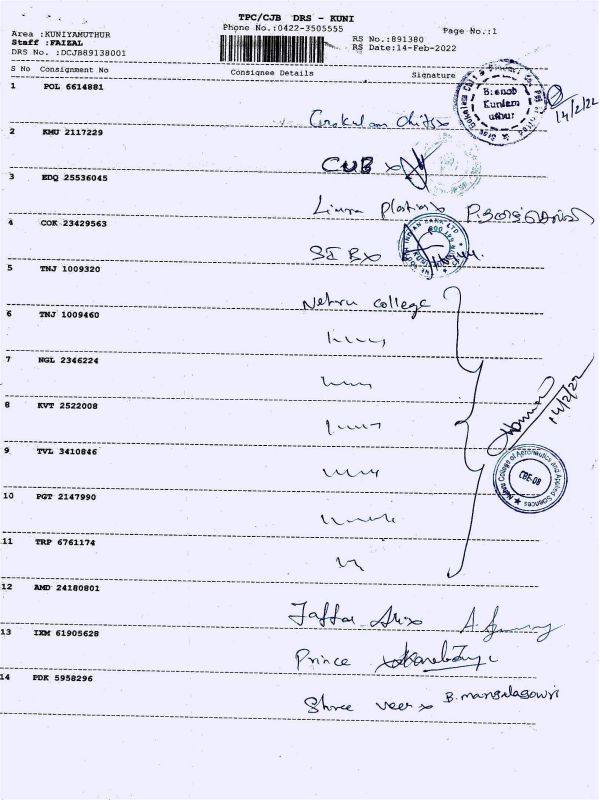 TPC/CJB DRS - KUNI
Phone No.:0422-3505555
Page No.:1
Area :KUNIYAMUTHUR
Staff :FAIZAL
DRS No. :DCJB89138001
RS No.:891380
RS Date:14-Feb-2022
S No Consignment No Consignee Details Signature
1 POL 6614881
14/2/22
2 KMU 2117229 CUB
3 EDQ 25536045
4 COK 23429563 SIB
5 TNJ 1009320 Nehru college
6 TNJ 1009460
7 NGL 2346224
8 KVT 2522008
14/2/22
9 TVL 3410846
Nehru College of Aeronautics and Applied Sciences
CBE-08
10 PGT 2147990
11 TRP 6761174
12 AMD 24180801 Jaffar
13 IXM 61905628 Prince
14 PDK 5958296 Shree veer B. mangalagowri